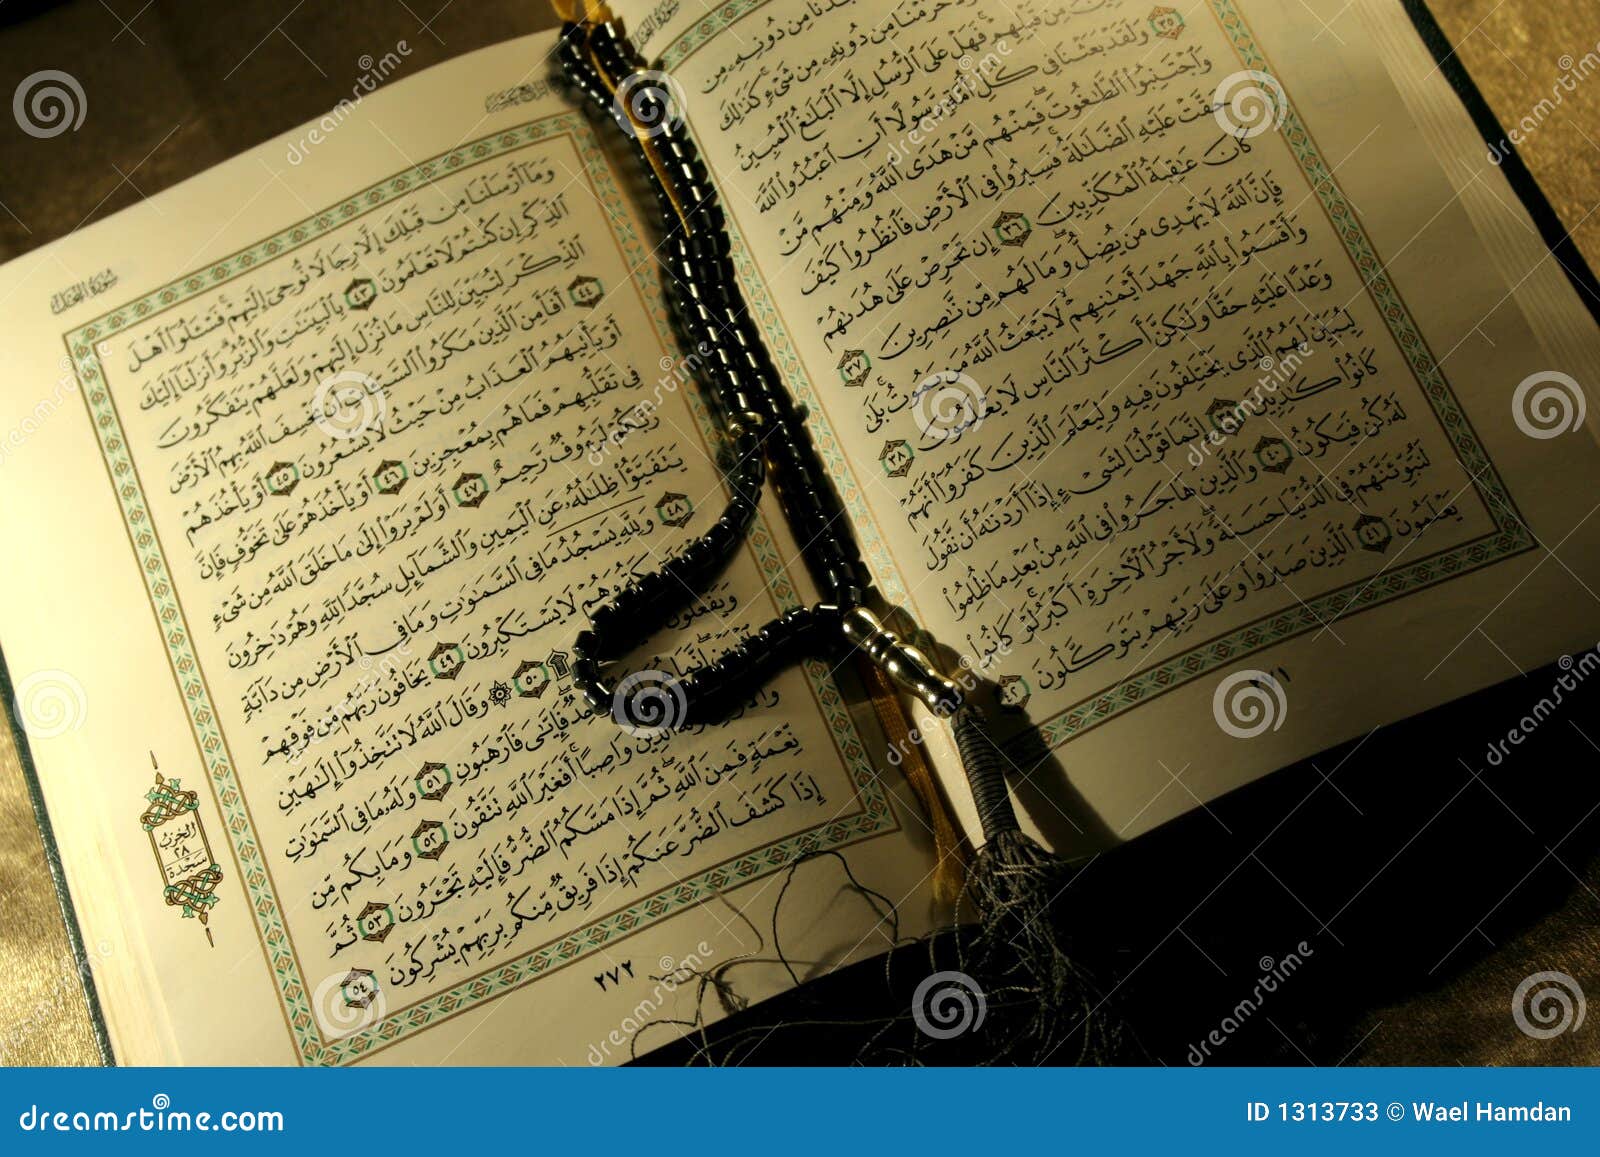 مِن دُونِهِۦ مِن
حَرَّمْنَا مِن دُونِهِۦ مِن شَىْءٍ ۚ كَذَٰلِكَ
مِن قَبْلِهِمْ ۚ فَهَلْ عَلَى ٱلرُّسُلِ إِلَّا ٱلْبَلَٰغُ ٱلْمُبِينُ
٣٥ وَلَقَدْ بَعَثْنَا فِى كُلِّ أُمَّةٍ رَّسُولًا أَنِ ٱعْبُدُوا۟ ٱللَّهَ
وَٱجْتَنِبُوا۟ ٱلطَّٰغُوتَ ۖ فَمِنْهُم مَّنْ هَدَى ٱللَّهُ وَمِنْهُم مَّنْ
حَقَّتْ عَلَيْهِ ٱلضَّلَٰلَةُ ۚ فَسِيرُوا۟ فِى ٱلْأَرْضِ فَٱنظُرُوا۟ كَيْفَ
كَانَ عَٰقِبَةُ ٱلْمُكَذِّبِينَ ٣٦ إِن تَحْرِصْ عَلَىٰ هُدَىٰهُمْ
فَإِنَّ ٱللَّهَ لَا يَهْدِى مَن يُضِلُّ ۖ وَمَا لَهُم مِّن نَّٰصِرِينَ ٣٧
وَأَقْسَمُوا۟ بِٱللَّهِ جَهْدَ أَيْمَٰنِهِمْ ۙ لَا يَبْعَثُ ٱللَّهُ مَن يَمُوتُ ۚ بَلَىٰ
وَعْدًا عَلَيْهِ حَقًّا وَلَٰكِنَّ أَكْثَرَ ٱلنَّاسِ لَا يَعْلَمُونَ ٣٨
لِيُبَيِّنَ لَهُمُ ٱلَّذِى يَخْتَلِفُونَ فِيهِ وَلِيَعْلَمَ ٱلَّذِينَ كَفَرُوٓا۟ أَنَّهُمْ
كَانُوا۟ كَٰذِبِينَ ٣٩ إِنَّمَا قَوْلُنَا لِشَىْءٍ إِذَآ أَرَدْنَٰهُ أَن نَّقُولَ
لَهُۥ كُن فَيَكُونُ ٤٠ وَٱلَّذِينَ هَاجَرُوا۟ فِى ٱللَّهِ مِنۢ بَعْدِ مَا ظُلِمُوا۟
لَنُبَوِّئَنَّهُمْ فِى ٱلدُّنْيَا حَسَنَةً ۖ وَلَأَجْرُ ٱلْءَاخِرَةِ أَكْبَرُ ۚ لَوْ كَانُوا۟
يَعْلَمُونَ ٤١ ٱلَّذِينَ صَبَرُوا۟ وَعَلَىٰ رَبِّهِمْ يَتَوَكَّلُونَ ٤٢
٢٧١
سُورَةُ النَّحْلِ
وَمَآ أَرْسَلْنَا مِن قَبْلِكَ إِلَّا رِجَالًا نُّوحِىٓ إِلَيْهِمْ ۚ فَسْـَٔلُوٓا۟ أَهْلَ
ٱلذِّكْرِ إِن كُنتُمْ لَا تَعْلَمُونَ ٤٣ بِٱلْبَيِّنَٰتِ وَٱلزُّبُرِ ۗ وَأَنزَلْنَآ إِلَيْكَ
ٱلذِّكْرَ لِتُبَيِّنَ لِلنَّاسِ مَا نُزِّلَ إِلَيْهِمْ وَلَعَلَّهُمْ يَتَفَكَّرُونَ
٤٤ أَفَأَمِنَ ٱلَّذِينَ مَكَرُوا۟ ٱلسَّيِّـَٔاتِ أَن يَخْسِفَ ٱللَّهُ بِهِمُ ٱلْأَرْضَ
أَوْ يَأْتِيَهُمُ ٱلْعَذَابُ مِنْ حَيْثُ لَا يَشْعُرُونَ ٤٥ أَوْ يَأْخُذَهُمْ
فِى تَقَلُّبِهِمْ فَمَا هُم بِمُعْجِزِينَ ٤٦ أَوْ يَأْخُذَهُمْ عَلَىٰ تَخَوُّفٍ فَإِنَّ
رَبَّكُمْ لَرَءُوفٌ رَّحِيمٌ ٤٧ أَوَلَمْ يَرَوْا۟ إِلَىٰ مَا خَلَقَ ٱللَّهُ مِن شَىْءٍ
يَتَفَيَّؤُا۟ ظِلَٰلُهُۥ عَنِ ٱلْيَمِينِ وَٱلشَّمَآئِلِ سُجَّدًا لِّلَّهِ وَهُمْ دَٰخِرُونَ
٤٨ وَلِلَّهِ يَسْجُدُ مَا فِى ٱلسَّمَٰوَٰتِ وَمَا فِى ٱلْأَرْضِ مِن دَآبَّةٍ
وَهُمْ لَا يَسْتَكْبِرُونَ ٤٩ يَخَافُونَ رَبَّهُم مِّن فَوْقِهِمْ
وَيَفْعَلُونَ ٥٠ وَقَالَ ٱللَّهُ لَا تَتَّخِذُوٓا۟ إِلَٰهَيْنِ
إِنَّمَا فَإِيَّٰىَ فَٱرْهَبُونِ ٥١ وَلَهُۥ مَا فِى ٱلسَّمَٰوَٰتِ
ٱلدِّينُ وَاصِبًا ۚ أَفَغَيْرَ ٱللَّهِ تَتَّقُونَ ٥٢ وَمَا بِكُم مِّن
نِّعْمَةٍ فَمِنَ ٱللَّهِ ۖ ثُمَّ إِذَا مَسَّكُمُ ٱلضُّرُّ فَإِلَيْهِ تَجْـَٔرُونَ ٥٣ ثُمَّ
إِذَا كَشَفَ ٱلضُّرَّ عَنكُمْ إِذَا فَرِيقٌ مِّنكُم بِرَبِّهِمْ يُشْرِكُونَ ٥٤
الحزب
٢٨
سجدة
٢٧٢
dreamstime.com
ID 1313733 © Wael Hamdan